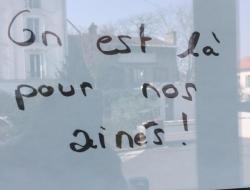 On est là
pour nos
ainés!